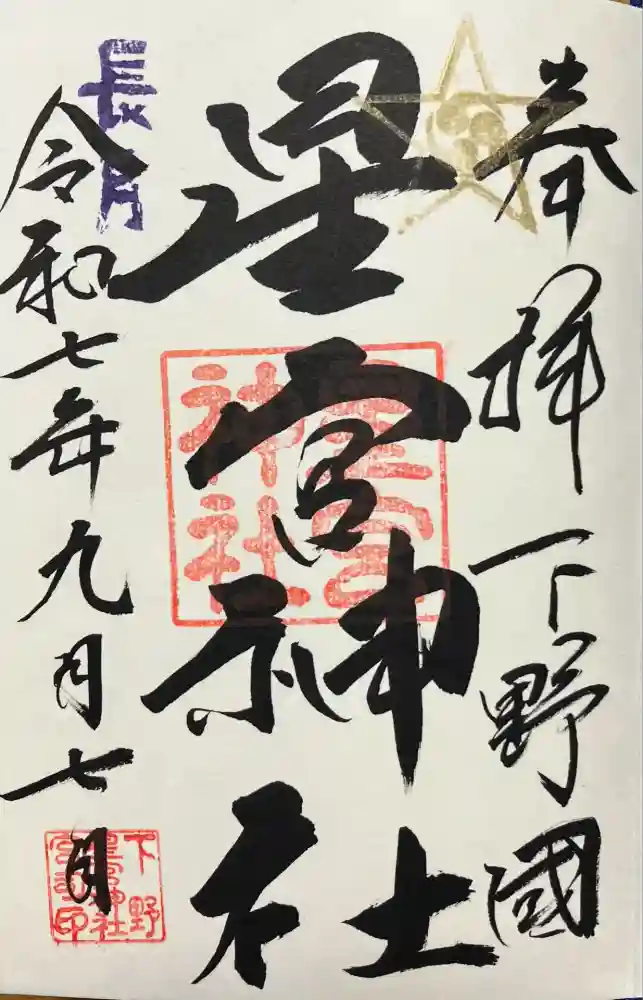 奉拝 下野國
星宮神社
令和七年九月七日
長月
星宮
神社
下野
星宮神社